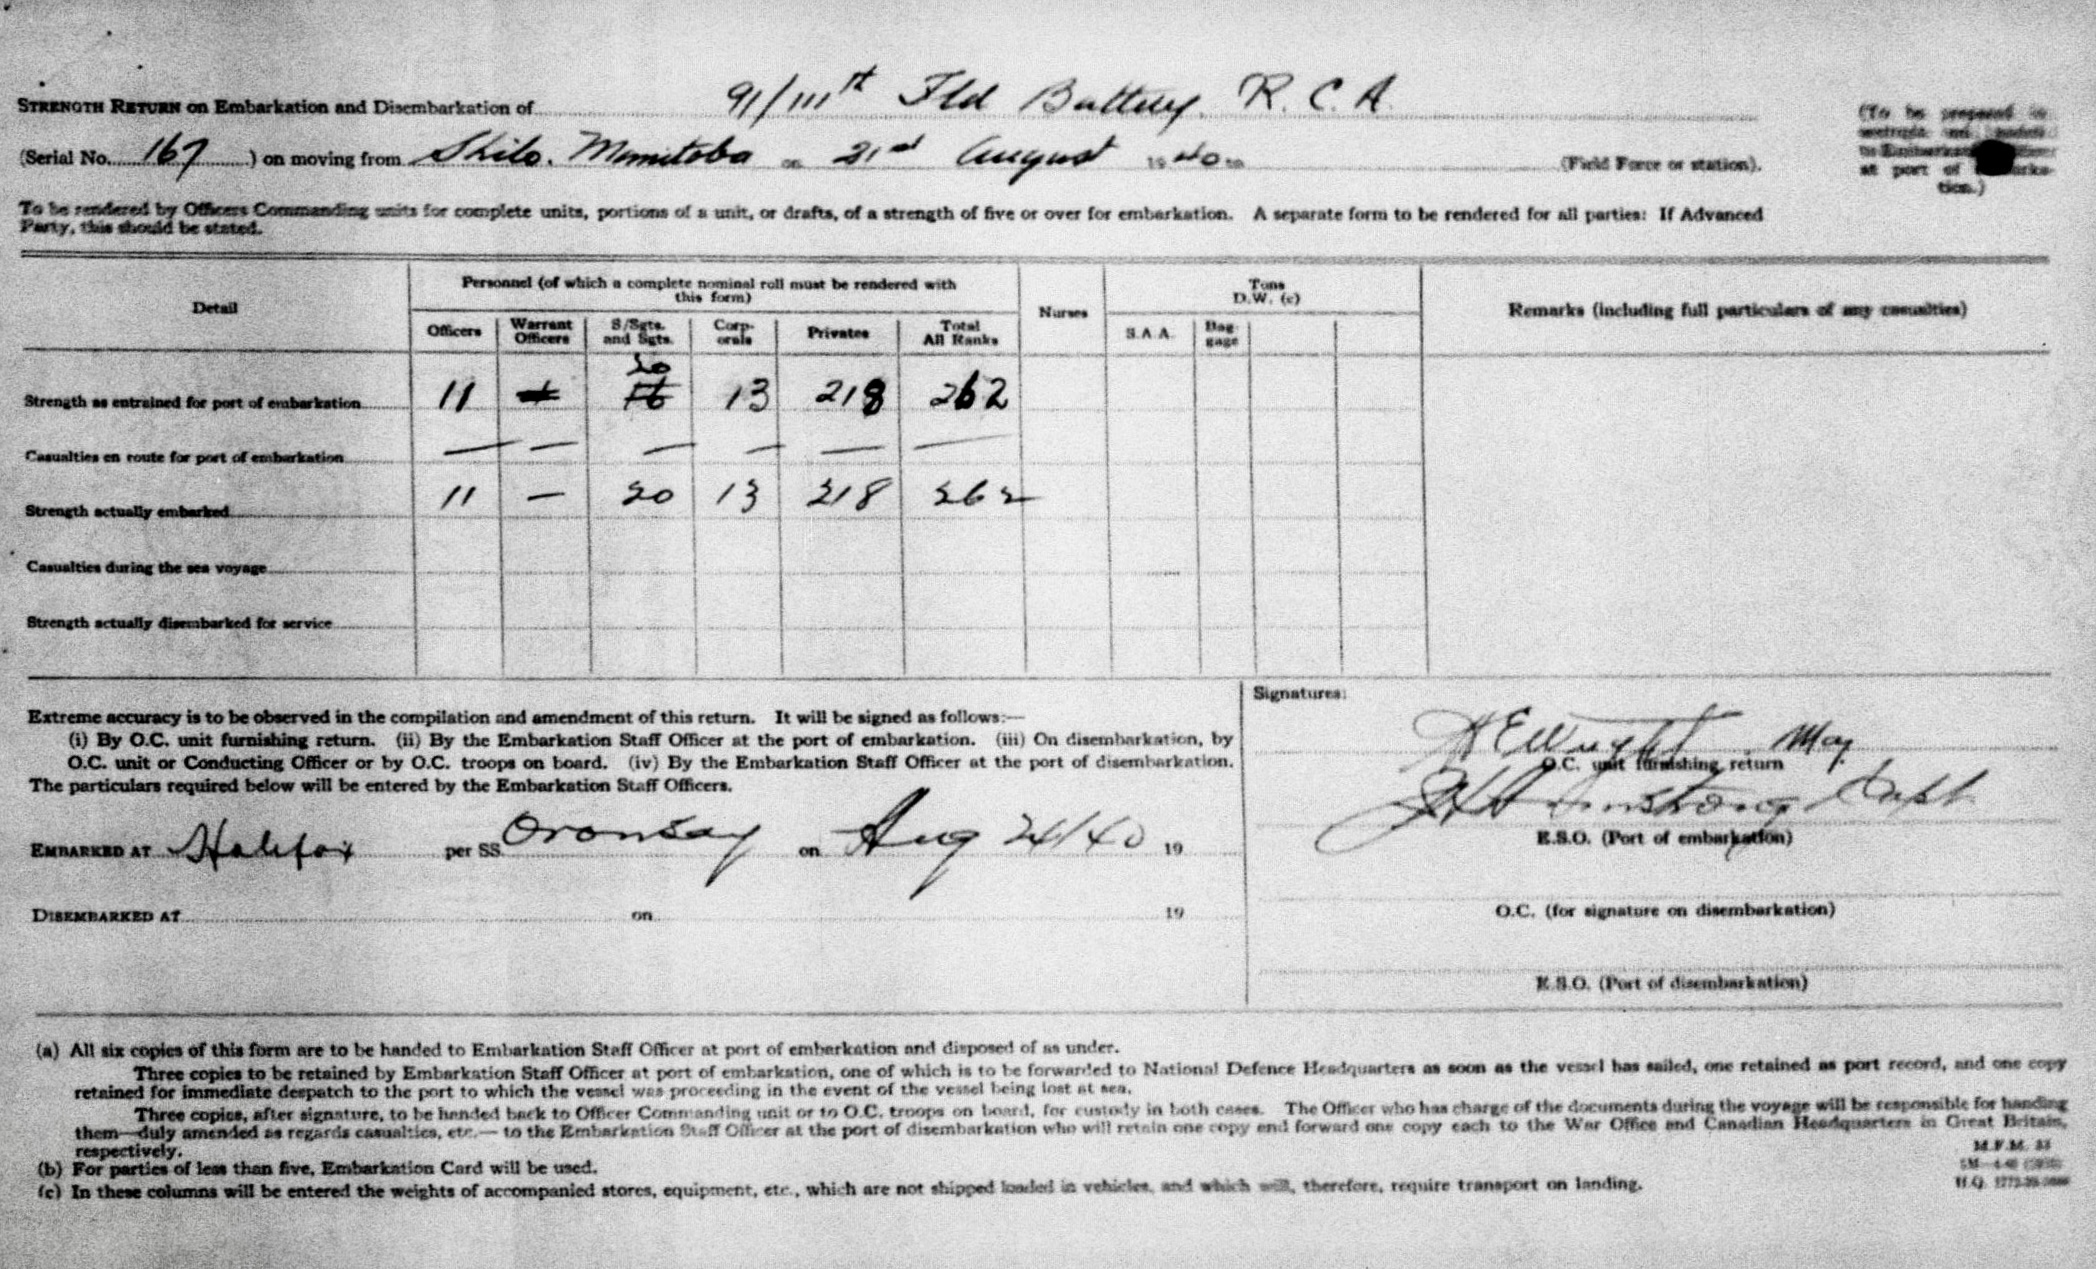 STRENGTH RETURN on Embarkation and Disembarkation of 91/111th Fld Battery R.C.A.
(Serial No. 167 ) on moving from Shilo. Manitoba on 21st August 1940 to (Field Force or station).
(To be prepared in
at port of
tion.)
To be rendered by Officers Commanding units for complete units, portions of a unit, or drafts, of a strength of five or over for embarkation. A separate form to be rendered for all parties: If Advanced
Party, this should be stated.
Detail
Personnel (of which a complete nominal roll must be rendered with
this form)
Nurses
Tons
D.W. (c)
Remarks (including full particulars of any casualties)
Officers
Warrant
Officers
S/Sgts.
and Sgts.
Corp-
orals
Privates
Total
All Ranks
S.A.A.
Bag-
gage
20
Strength as entrained for port of embarkation 11 16 13 218 262
Casualties en route for port of embarkation — — — — — —
Strength actually embarked 11 — 20 13 218 262
Casualties during the sea voyage
Strength actually disembarked for service
Signatures:
Extreme accuracy is to be observed in the compilation and amendment of this return. It will be signed as follows:—
(i) By O.C. unit furnishing return. (ii) By the Embarkation Staff Officer at the port of embarkation. (iii) On disembarkation, by
O.C. unit or Conducting Officer or by O.C. troops on board. (iv) By the Embarkation Staff Officer at the port of disembarkation.
The particulars required below will be entered by the Embarkation Staff Officers.
HE Wright. Maj.
O.C. unit furnishing return
Armstrong Capt
E.S.O. (Port of embarkation)
EMBARKED AT Halifax per SS Oronsay on Aug 24/40 19
DISEMBARKED AT on 19
O.C. (for signature on disembarkation)
E.S.O. (Port of disembarkation)
(a) All six copies of this form are to be handed to Embarkation Staff Officer at port of embarkation and disposed of as under.
Three copies to be retained by Embarkation Staff Officer at port of embarkation, one of which is to be forwarded to National Defence Headquarters as soon as the vessel has sailed, one retained as port record, and one copy
retained for immediate despatch to the port to which the vessel was proceeding in the event of the vessel being lost at sea.
Three copies, after signature, to be handed back to Officer Commanding unit or to O.C. troops on board, for custody in both cases. The Officer who has charge of the documents during the voyage will be responsible for handing
them—duly amended as regards casualties, etc.— to the Embarkation Staff Officer at the port of disembarkation who will retain one copy and forward one copy each to the War Office and Canadian Headquarters in Great Britain,
respectively.
(b) For parties of less than five, Embarkation Card will be used.
(c) In these columns will be entered the weights of accompanied stores, equipment, etc., which are not shipped loaded in vehicles, and which will, therefore, require transport on landing.
M.F.M. 33
H.Q.